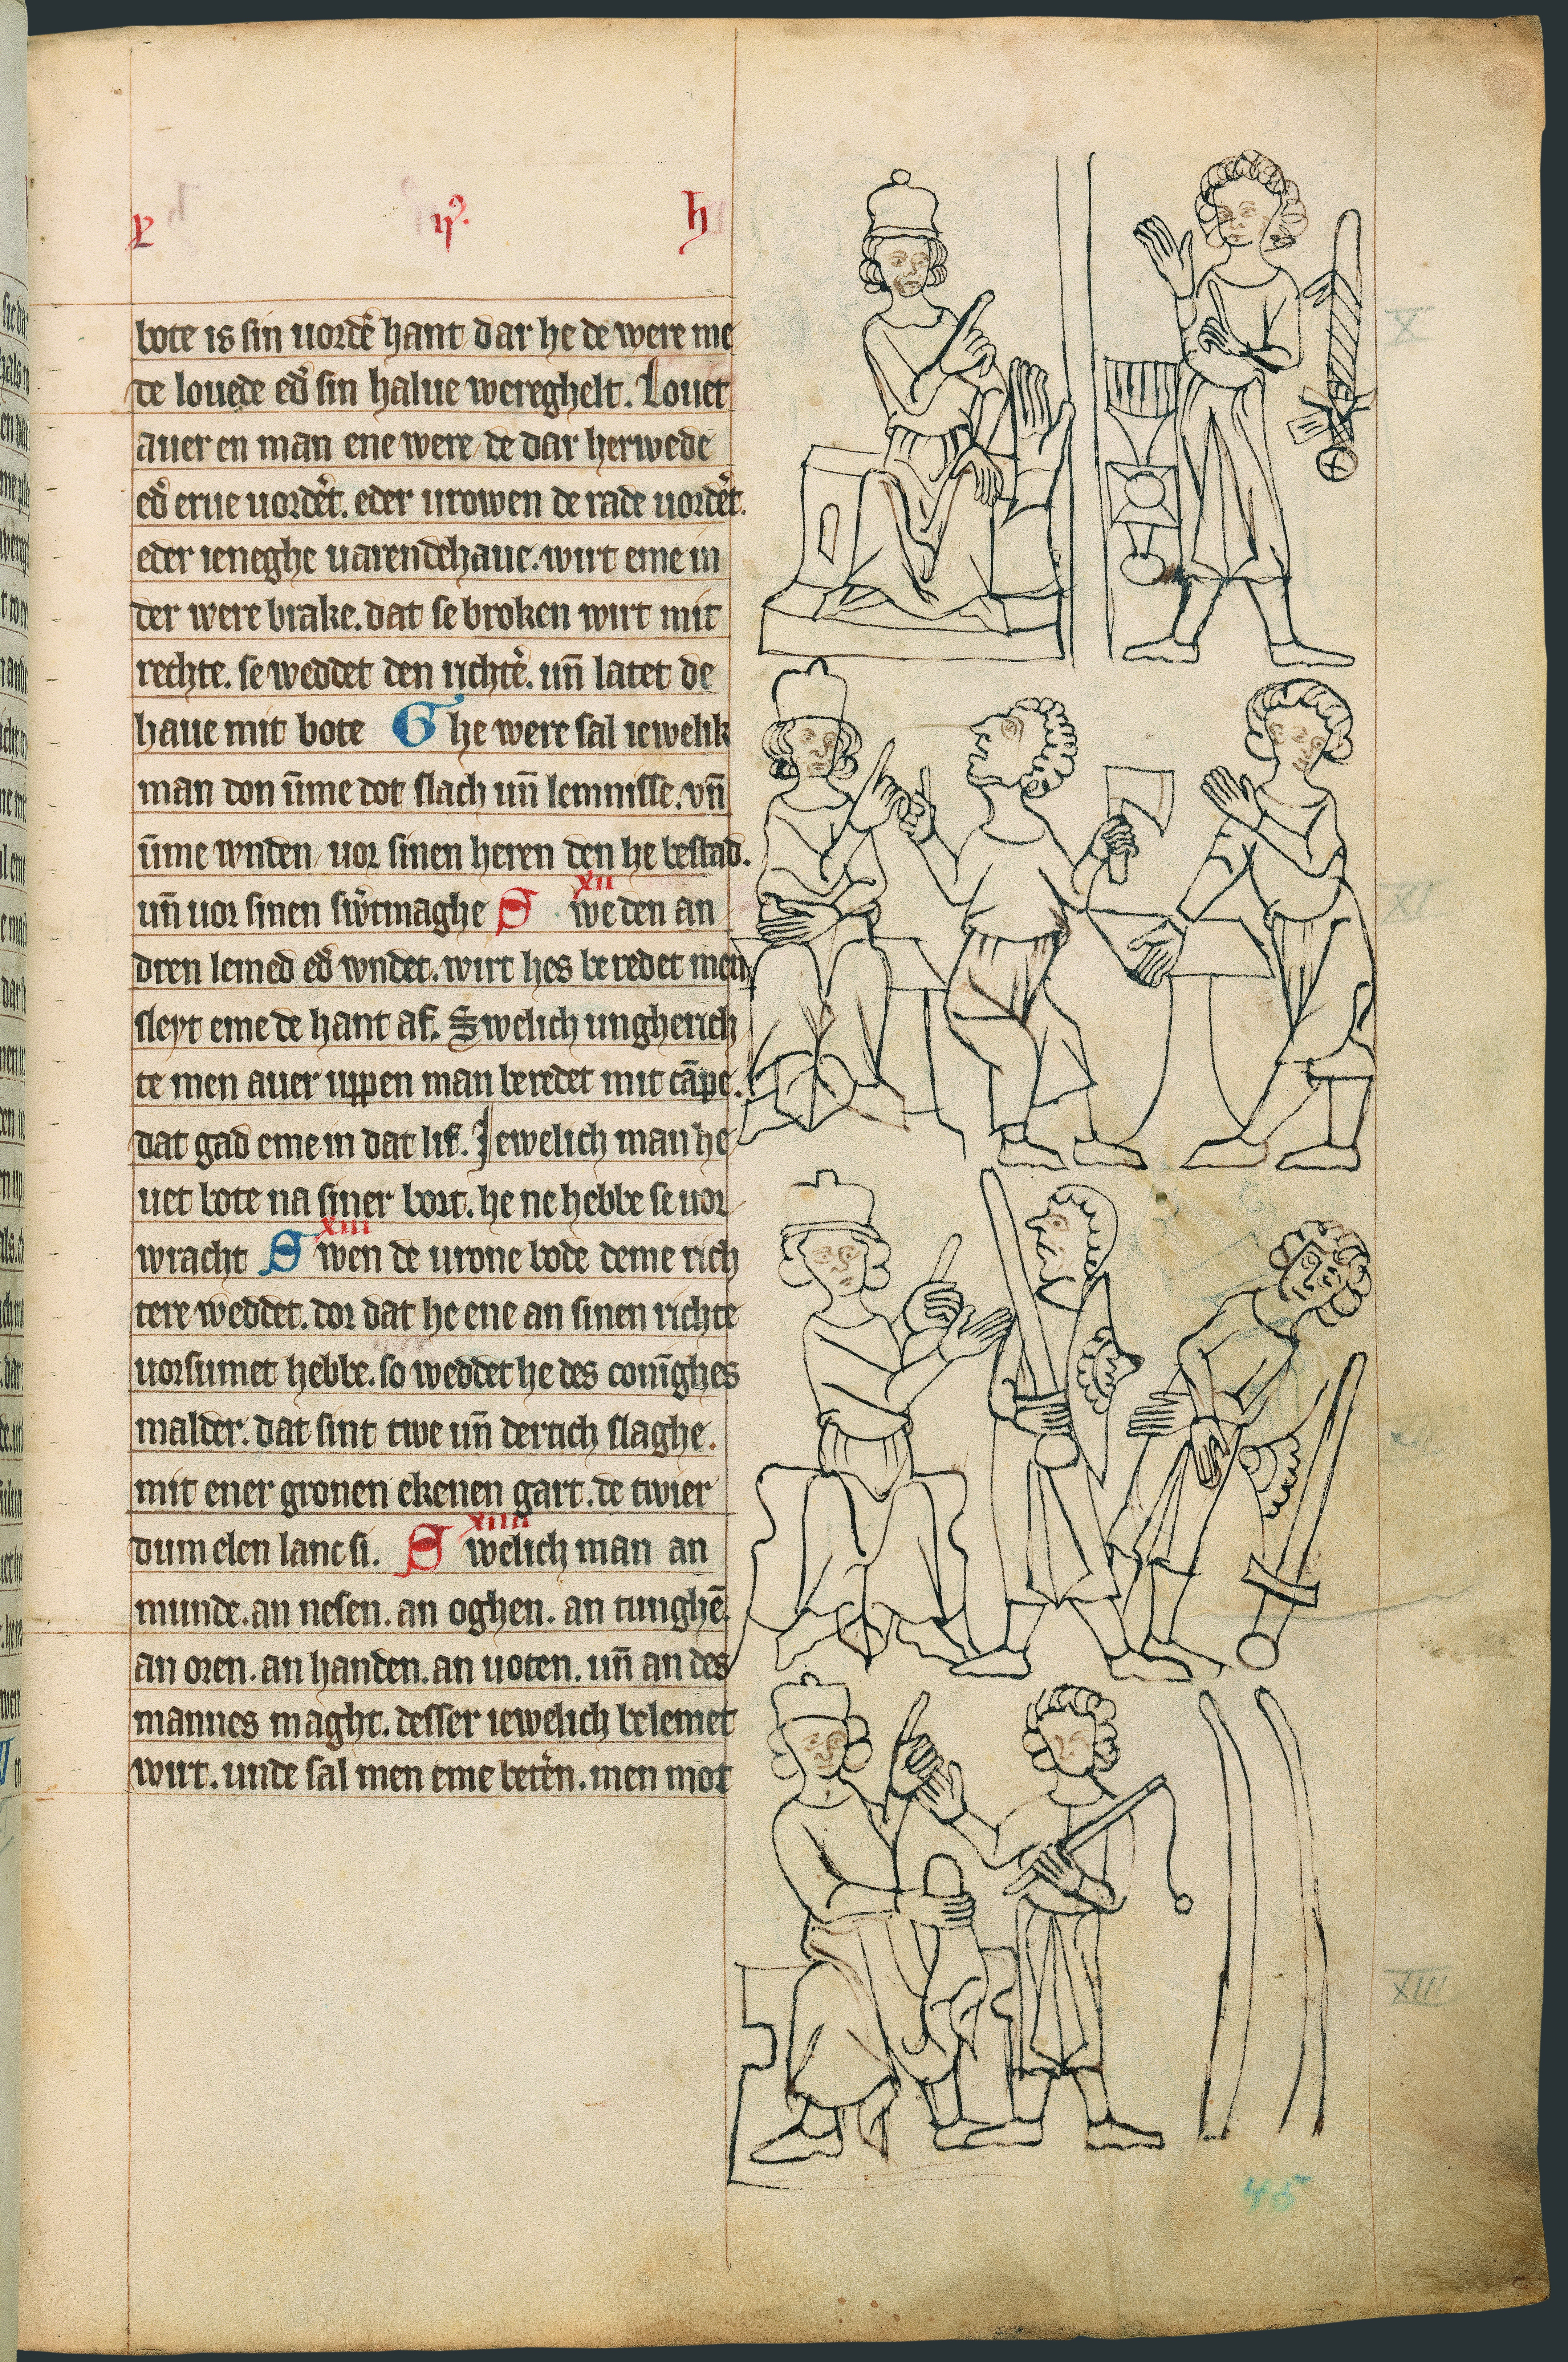 bote is sin uordē hant dar he de were me
de louede ed̄ sin halue wereghelt. Louet
auer en man ene were de dar herwede
ed̄ erue uordet̄. eder urowen de rade uordet̄.
eder ieneghe uarendehaue. wirt eme in
der were brake. dat se broken wirt mit
rechte. se weddet den richte᷑. un̄ latet de
haue mit bote Ghe were sal iewelik
man don ūme dot slach un̄ lemnisse. vn̄
ūme wnden uor sinen heren den he bestad.
xii
un̄ uor sinen sw᷑tmaghe S we den an
dren lemed ed̄ wndet. wirt hes be redet men
sleyt eme de hant af. Swelich ungherich
te men auer uppen man beredet mit cāpe.
dat gad eme in dat lif. Jewelich man he
uet bote na siner bort. he ne hebbe se uor
xiii
wracht S wen de urone bode deme rich
tere weddet. dor dat he ene an sinen richte
uorsumet hebbe. so weddet he des conīghes
malder. dat sint twe un̄ dertich slaghe.
mit ener gronen ekenen gart. de twier
xiiii
dum elen lanc si. S welich man an
munde. an nesen. an oghen. an tunghē.
an oren. an handen. an uoten. un̄ an des
mannes maght. desser iewelich belemet
wirt. unde sal men eme betēn. men mot
X
XI
XII
XIII
45